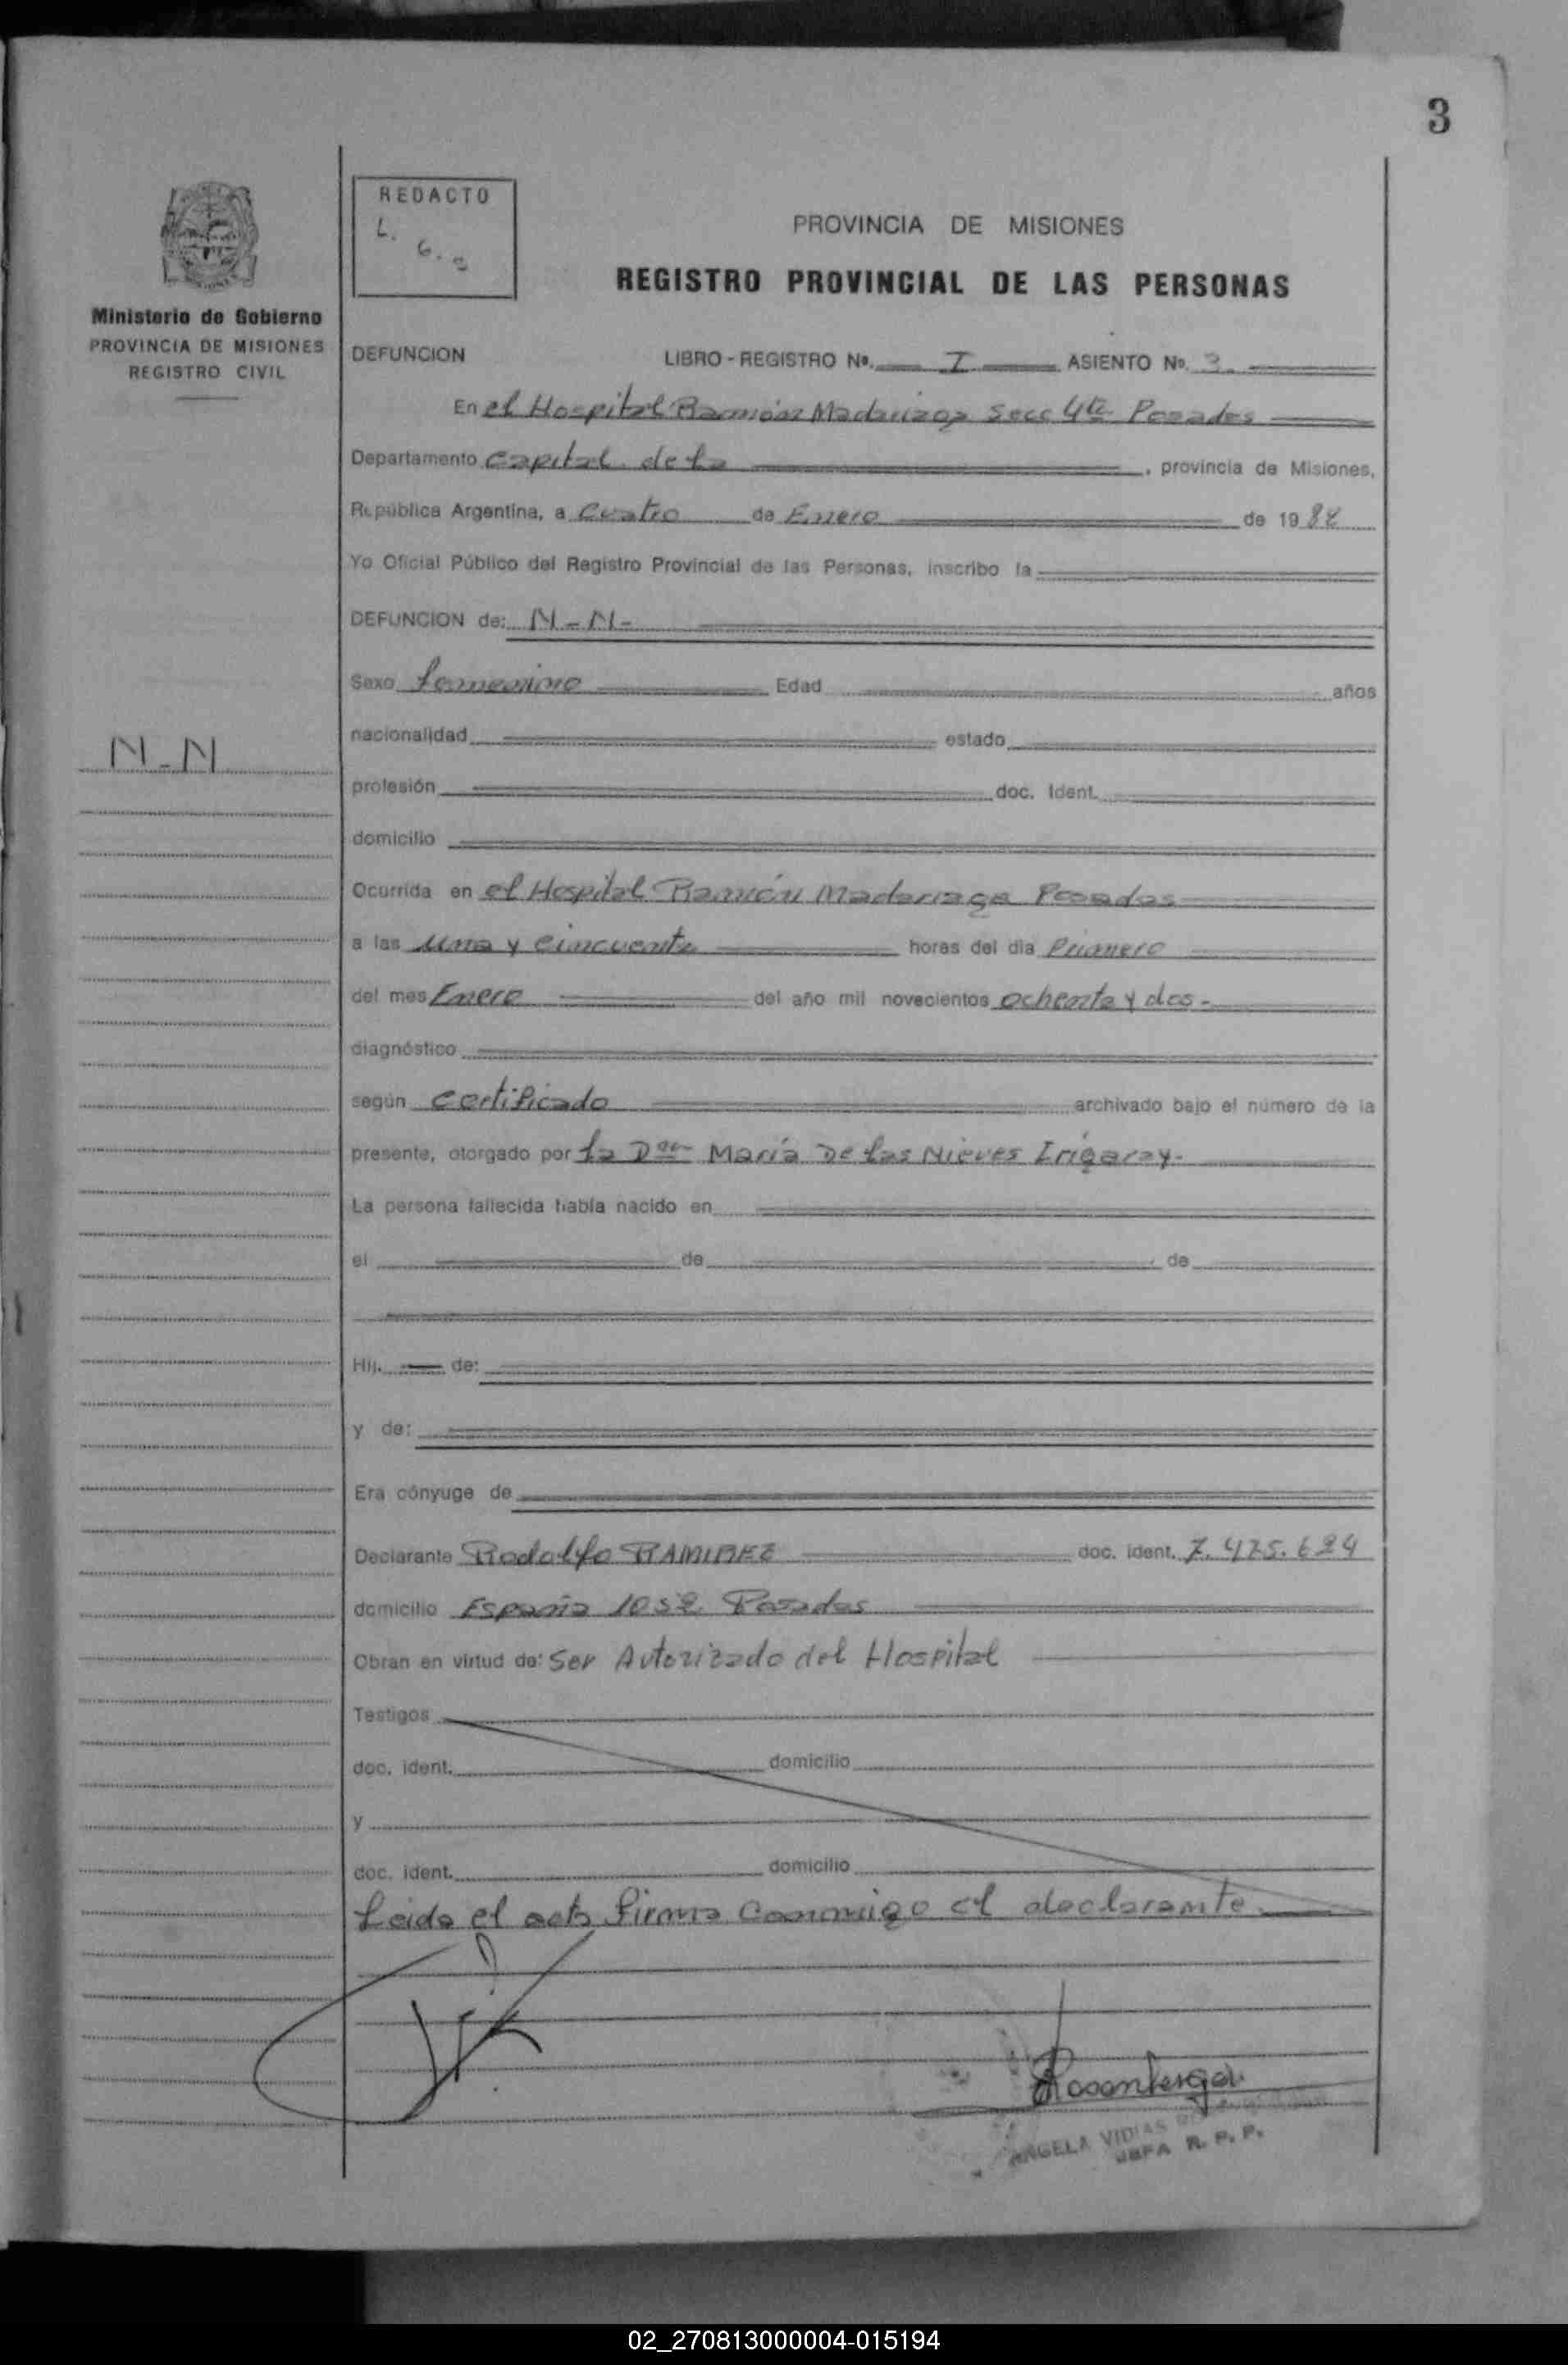 3
REDACTO
L. G.
Ministerio de Gobierno
PROVINCIA DE MISIONES
REGISTRO CIVIL
PROVINCIA DE MISIONES
REGISTRO PROVINCIAL DE LAS PERSONAS
DEFUNCION LIBRO - REGISTRO Nº. I ASIENTO Nº. 3.
En el Hospital Ramón Madariaga Secc 4ta Posadas
Departamento Capital de la , provincia de Misiones,
República Argentina, a Cuatro de Enero de 19 82
Yo Oficial Público del Registro Provincial de las Personas, inscribo la
DEFUNCION de: N-N-
Sexo femenino Edad años
nacionalidad estado
N-N
profesión doc. Ident.
domicilio
Ocurrida en el Hospital Ramón Madariaga Posadas
a las una y cincuenta horas del día Primero
del mes Enero del año mil novecientos ochenta y dos-
diagnóstico
según certificado archivado bajo el número de la
presente, otorgado por la Dra María De las Nieves Irigaray-
La persona fallecida había nacido en
el de de
Hij. de:
y de:
Era cónyuge de
Declarante Rodolfo RAMIREZ doc. ident. 7.475.624
domicilio España 1052 Posadas
Obran en virtud de: Ser Autorizado del Hospital
Testigos
doc. ident. domicilio
y
doc. ident. domicilio
Leida el acta firma conmigo el declarante
ANGELA VIDIAS
JEFA R. P. P.
02_270813000004-015194